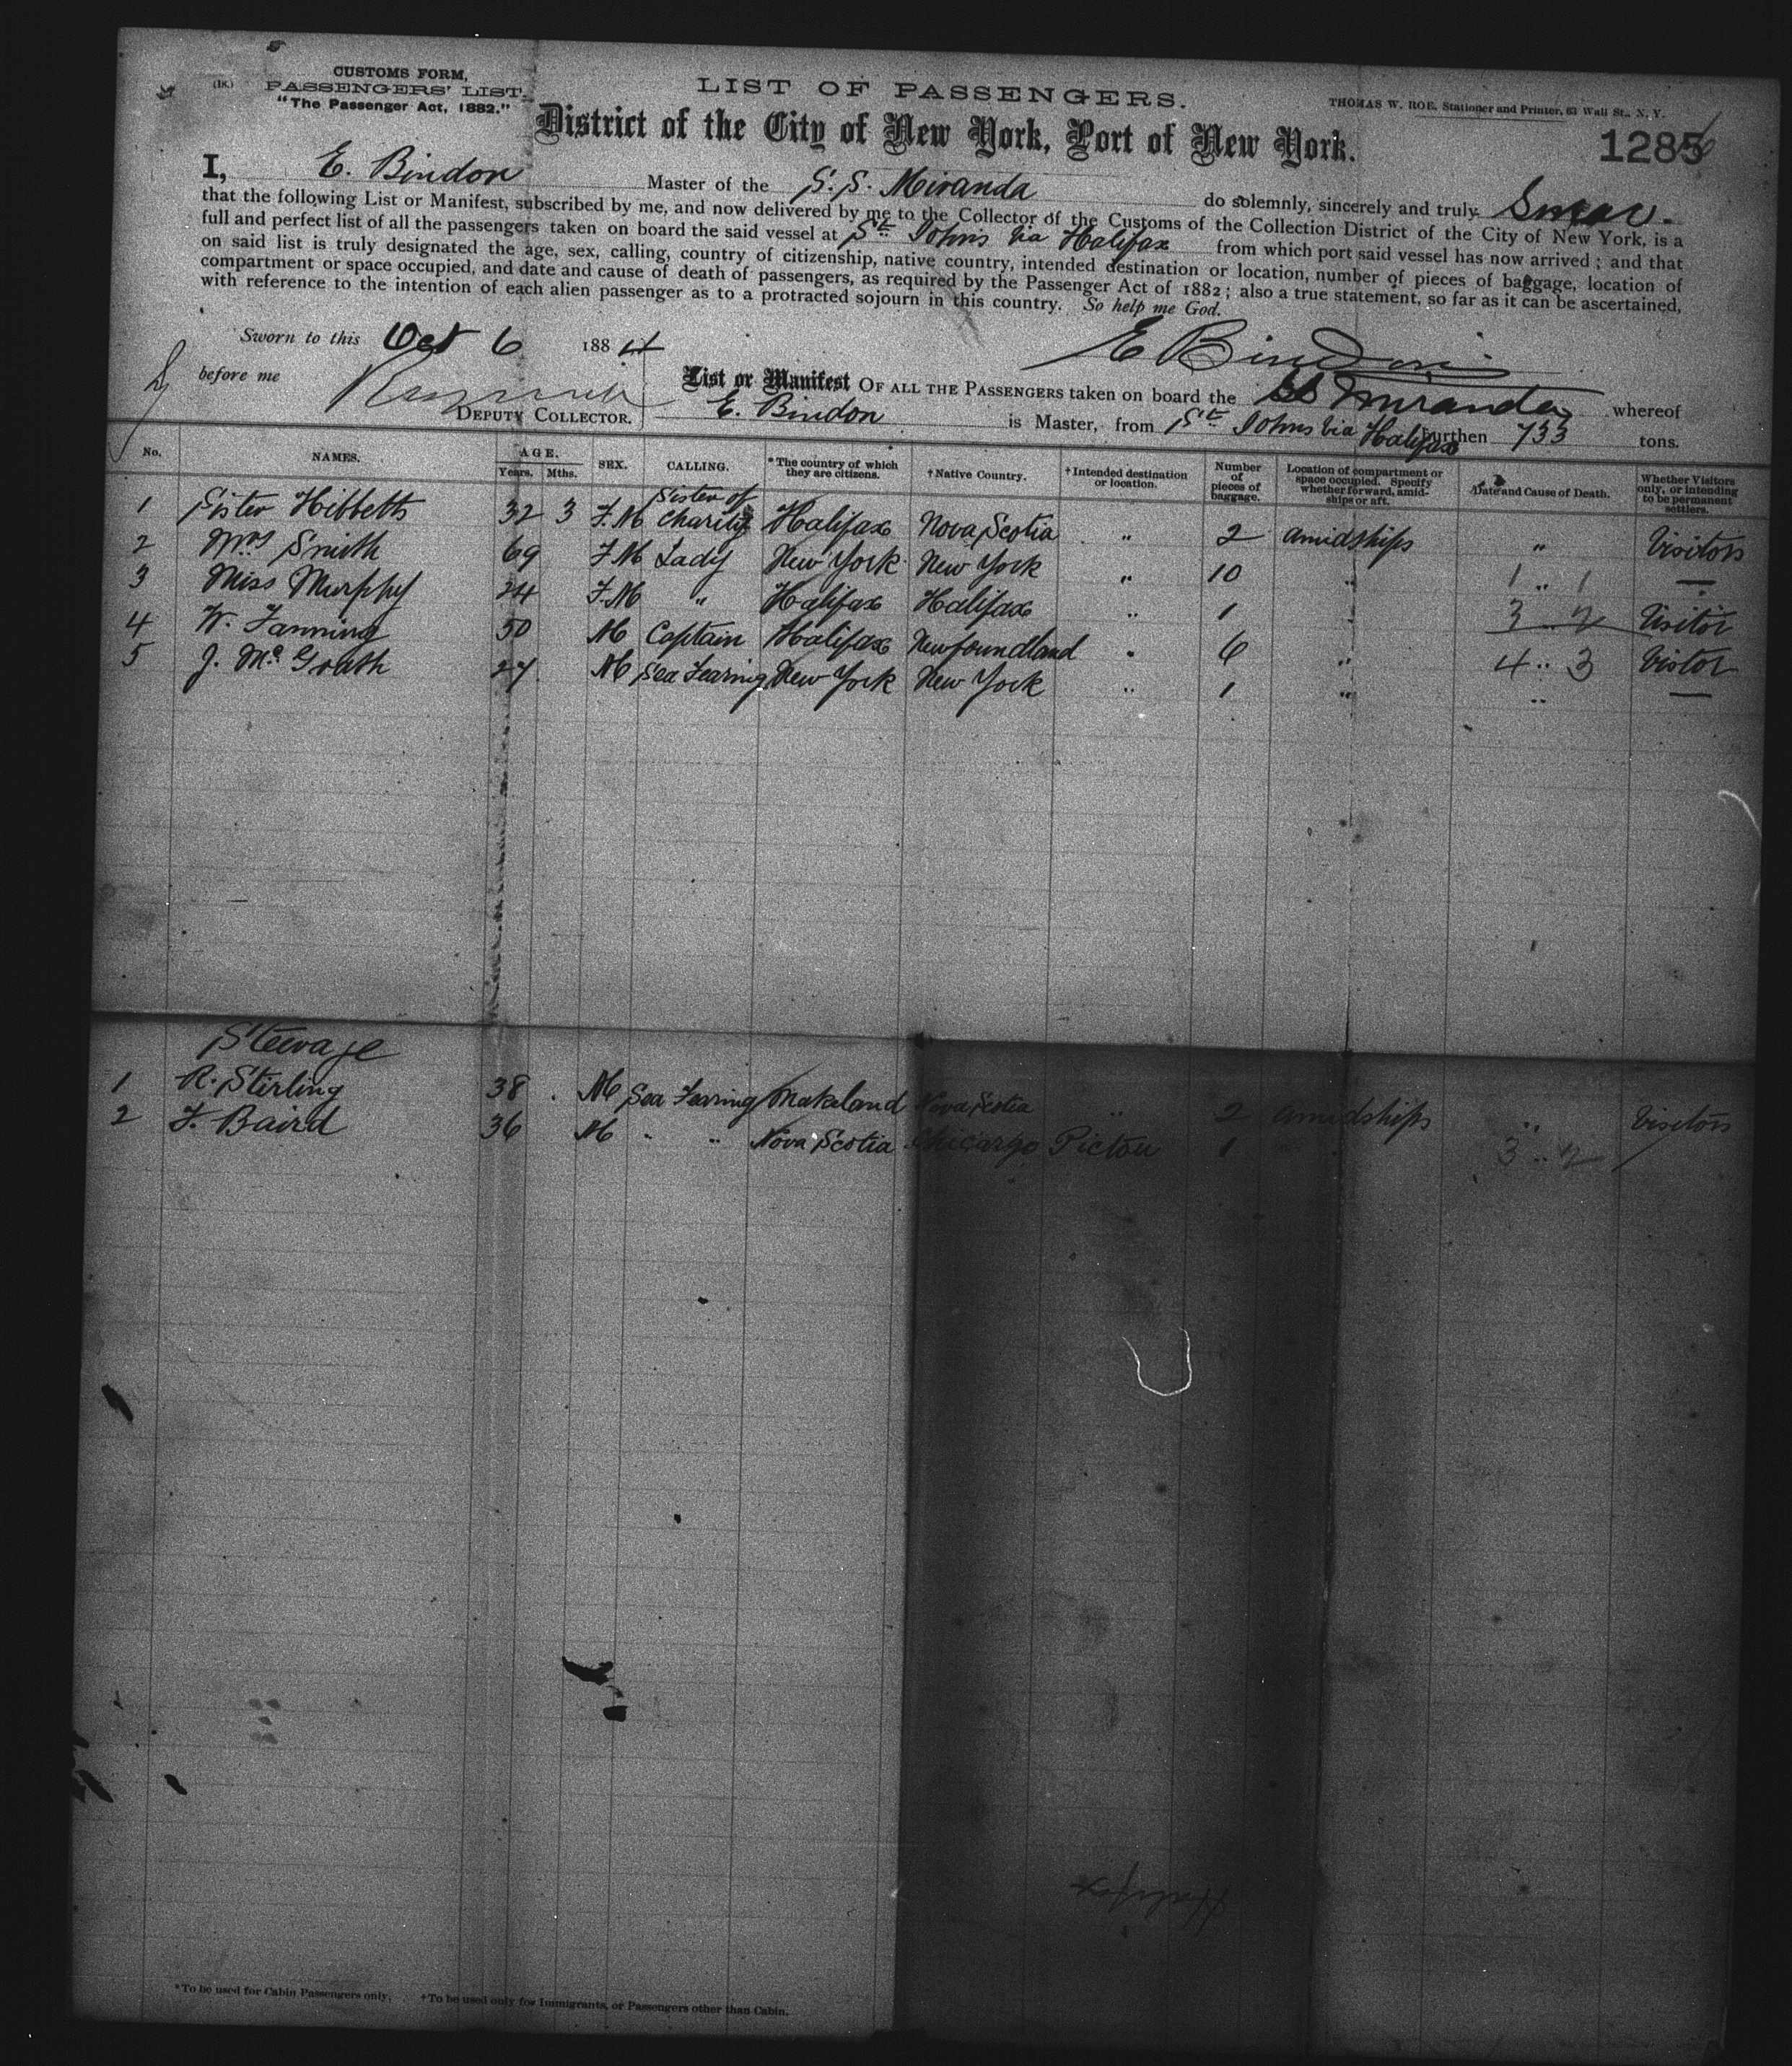 (1K.) CUSTOMS FORM,
PASSENGERS' LIST.
"The Passenger Act, 1882."
LIST OF PASSENGERS.
THOMAS W. ROE, Stationer and Printer, 63 Wall St., N. Y.
District of the City of New York, Port of New York.
1285
I, E. Bindon Master of the S.S. Miranda do solemnly, sincerely and truly Swear.
that the following List or Manifest, subscribed by me, and now delivered by me to the Collector of the Customs of the Collection District of the City of New York, is a
full and perfect list of all the passengers taken on board the said vessel at St. Johns via Halifax from which port said vessel has now arrived; and that
on said list is truly designated the age, sex, calling, country of citizenship, native country, intended destination or location, number of pieces of baggage, location of
compartment or space occupied, and date and cause of death of passengers, as required by the Passenger Act of 1882; also a true statement, so far as it can be ascertained,
with reference to the intention of each alien passenger as to a protracted sojourn in this country. So help me God.
Sworn to this Oct 6 1884
E Bindon
before me
DEPUTY COLLECTOR.
List or Manifest OF ALL THE PASSENGERS taken on board the SS Miranda whereof
E. Bindon is Master, from St. Johns via Halifax burthen 733 tons.
No. NAMES. AGE. Years. Mths. SEX. CALLING. *The country of which they are citizens. †Native Country. †Intended destination or location. Number of pieces of baggage. Location of compartment or space occupied. Specify whether forward, amidships or aft. Date and Cause of Death. Whether Visitors only, or intending to be permanent settlers.
1 Sister Hibbetts 32 3 F.M Sister of Charity Halifax Nova Scotia " 2 amidships " Visitors
2 Mrs Smith 69 F.M Lady New York New York " 10 " 1 " 1 —
3 Miss Murphy 24 F.M " Halifax Halifax " 1 " 3 .. 2 Visitor
4 W. Fanning 50 M Captain Halifax Newfoundland " 6 " 4 .. 3 Vistor
5 J. McGrath 27 M Sea Fearing New York New York " 1 " " —
Steerage
1 R. Stirling 38 M Sea Fearing Makeland Nova Scotia " 2 amidships " Visitors
2 F. Baird 36 M " " Nova Scotia Chicargo Pictou 1 3 .. 2
Halifax
*To be used for Cabin Passengers only. †To be used only for Immigrants, or Passengers other than Cabin.